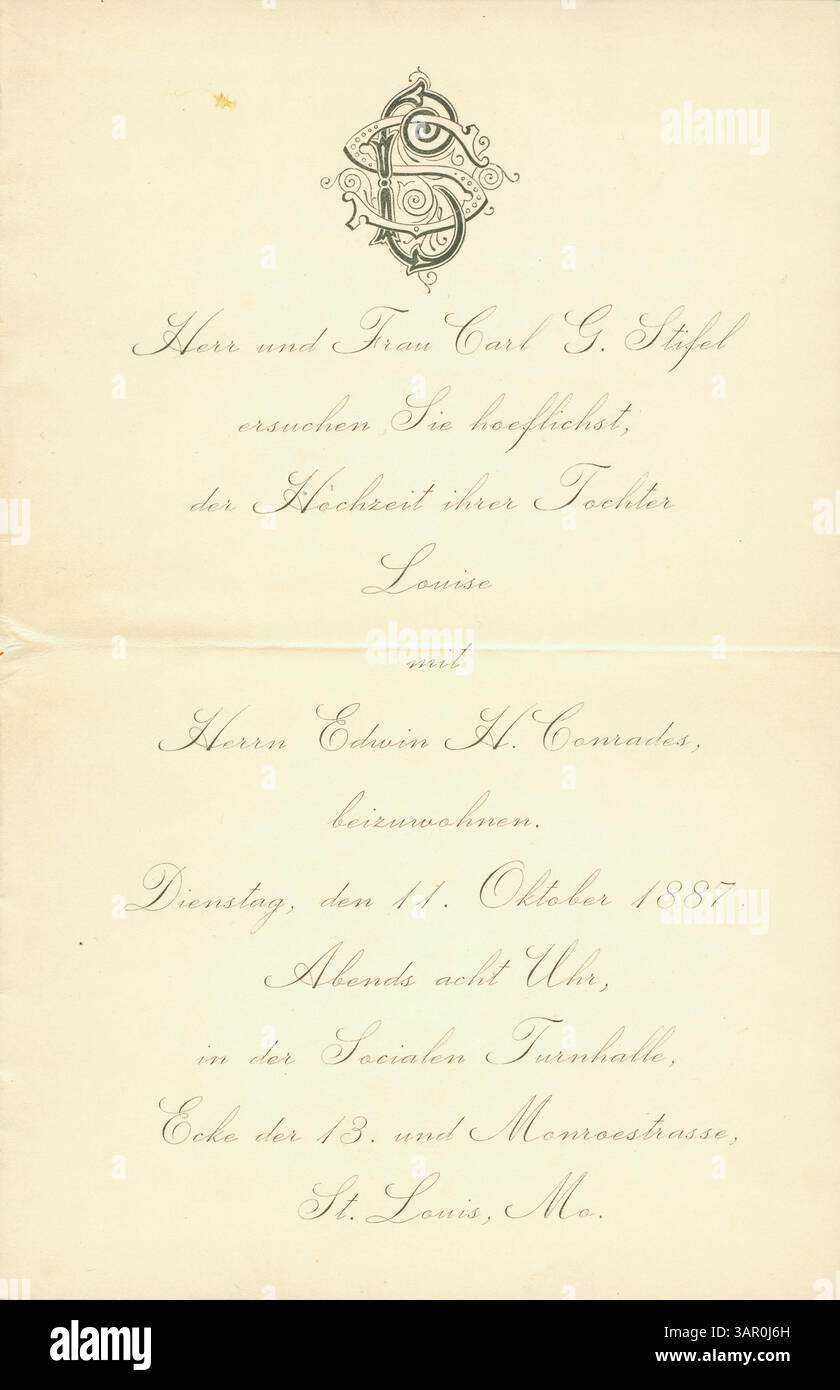 Herr und Frau Carl G. Stifel
ersuchen Sie hoeflichst,
der Hochzeit ihrer Tochter
Louise
mit
Herrn Edwin H. Conrades,
beizuwohnen.
Dienstag, den 11. Oktober 1887.
Abends acht Uhr,
in der Socialen Turnhalle,
Ecke der 13. und Monroestrasse,
St. Louis, Mo.
alamy
Image ID: 3AR0J6H
www.alamy.com